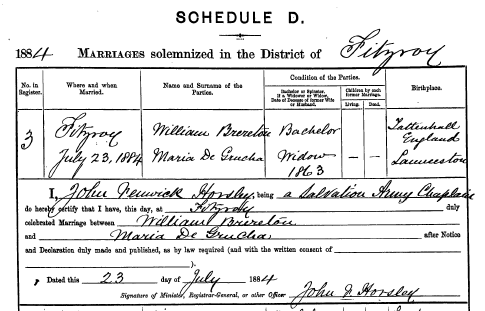 SCHEDULE D.
1884 MARRIAGES solemnized in the District of Fitzroy
No. in Register.
Where and when Married.
Name and Surname of the Parties.
Condition of the Parties.
Bachelor or Spinster. If a Widower or Widow, Date of Decease of former Wife or Husband.
Children by each former Marriage.
Living. Dead.
Birthplace.
3 Fitzroy William Brereton Bachelor Tattenhall England
July 23, 1884 Maria De Grucha Widow 1863 — — Launceston
I, John Horsley, being a Salvation Army Chaplain
do hereby certify that I have, this day, at Fitzroy duly
celebrated Marriage between William Brereton
and Maria De Grucha after Notice
and Declaration duly made and published, as by law required (and with the written consent of
).
Dated this 23 day of July 1884
Signature of Minister, Registrar-General, or other Officer John Horsley